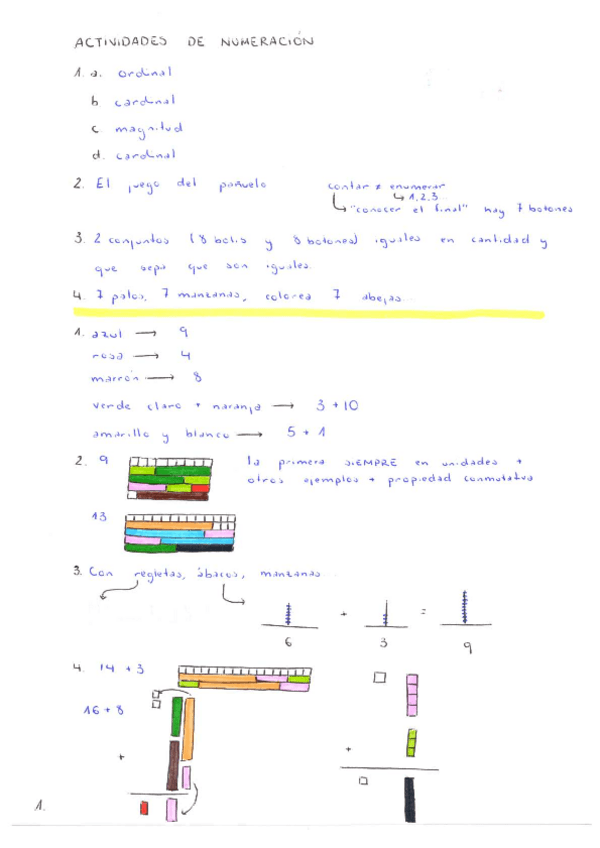 ACTIVIDADES DE NUMERACIÓN
1. a. ordinal
b cardinal
c magnitud
d. cardinal
2. El juego del pañuelo
contar ≠ enumerar
↳ 1,2,3...
↳ "conocer el final" hay 7 botones
3. 2 conjuntos (8 bolis y 8 botones) iguales en cantidad y
que sepa que son iguales.
4. 7 palos, 7 manzanas, colorea 7 abejas...
1. azul → 9
rosa → 4
marrón → 8
verde claro + naranja → 3 + 10
amarillo y blanco → 5 + 1
2. 9
la primera SIEMPRE en unidades +
otros ejemplos + propiedad conmutativa
13
3. Con regletas, ábacos, manzanas...
+ =
6 3 9
4. 14 + 3
16 + 8
+
+
1.